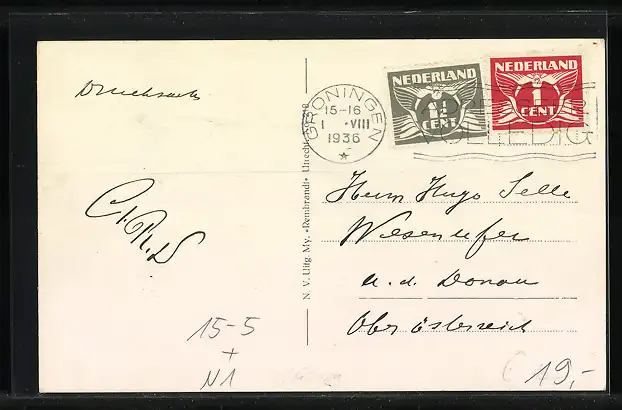 Drucksache
NEDERLAND
1½
CENT
NEDERLAND
1
CENT
GRONINGEN
15-16
1 ·VIII
1936
VOLLEDIG
Herrn Hugo Selle
Wesenufer
a. d. Donau
Ober Österreich
N. V. Uitg. My. «Rembrandt» Utrecht
15-5
+
N1
19,-